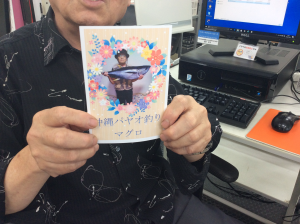 沖縄パヤオ釣り
マグロ